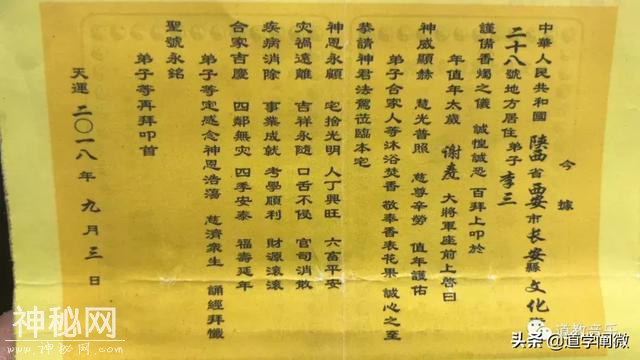 今據
中華人民共和國 陕西省西安市长安縣文化
二十八號地方居住弟子李三
謹備香燭之儀 誠惶誠恐 百拜上叩於
年值年太歲 谢 大將軍座前上啓曰
神威顯赫 慈光普照 慈尊辛勞 值年護佑
弟子合家人等沐浴焚香 敬奉香表花果 誠心之至
恭請神君法駕蒞臨本宅
神恩永顧 宅捨光明 人丁興旺 六富平安
灾禍遠離 吉祥永隨 口舌不侵 官司消散
疾病消除 事業成就 考學順利 財源滾滾
合家吉慶 四鄰無灾 四季安泰 福壽延年
弟子等定感念神恩浩蕩 慈濟衆生 誦經拜懺
聖號永銘
弟子等再拜叩首
天運 二〇一八年 九月三日
神秘网
WWW.SHENMIW.COM
道教音乐
头条 @道学阐微